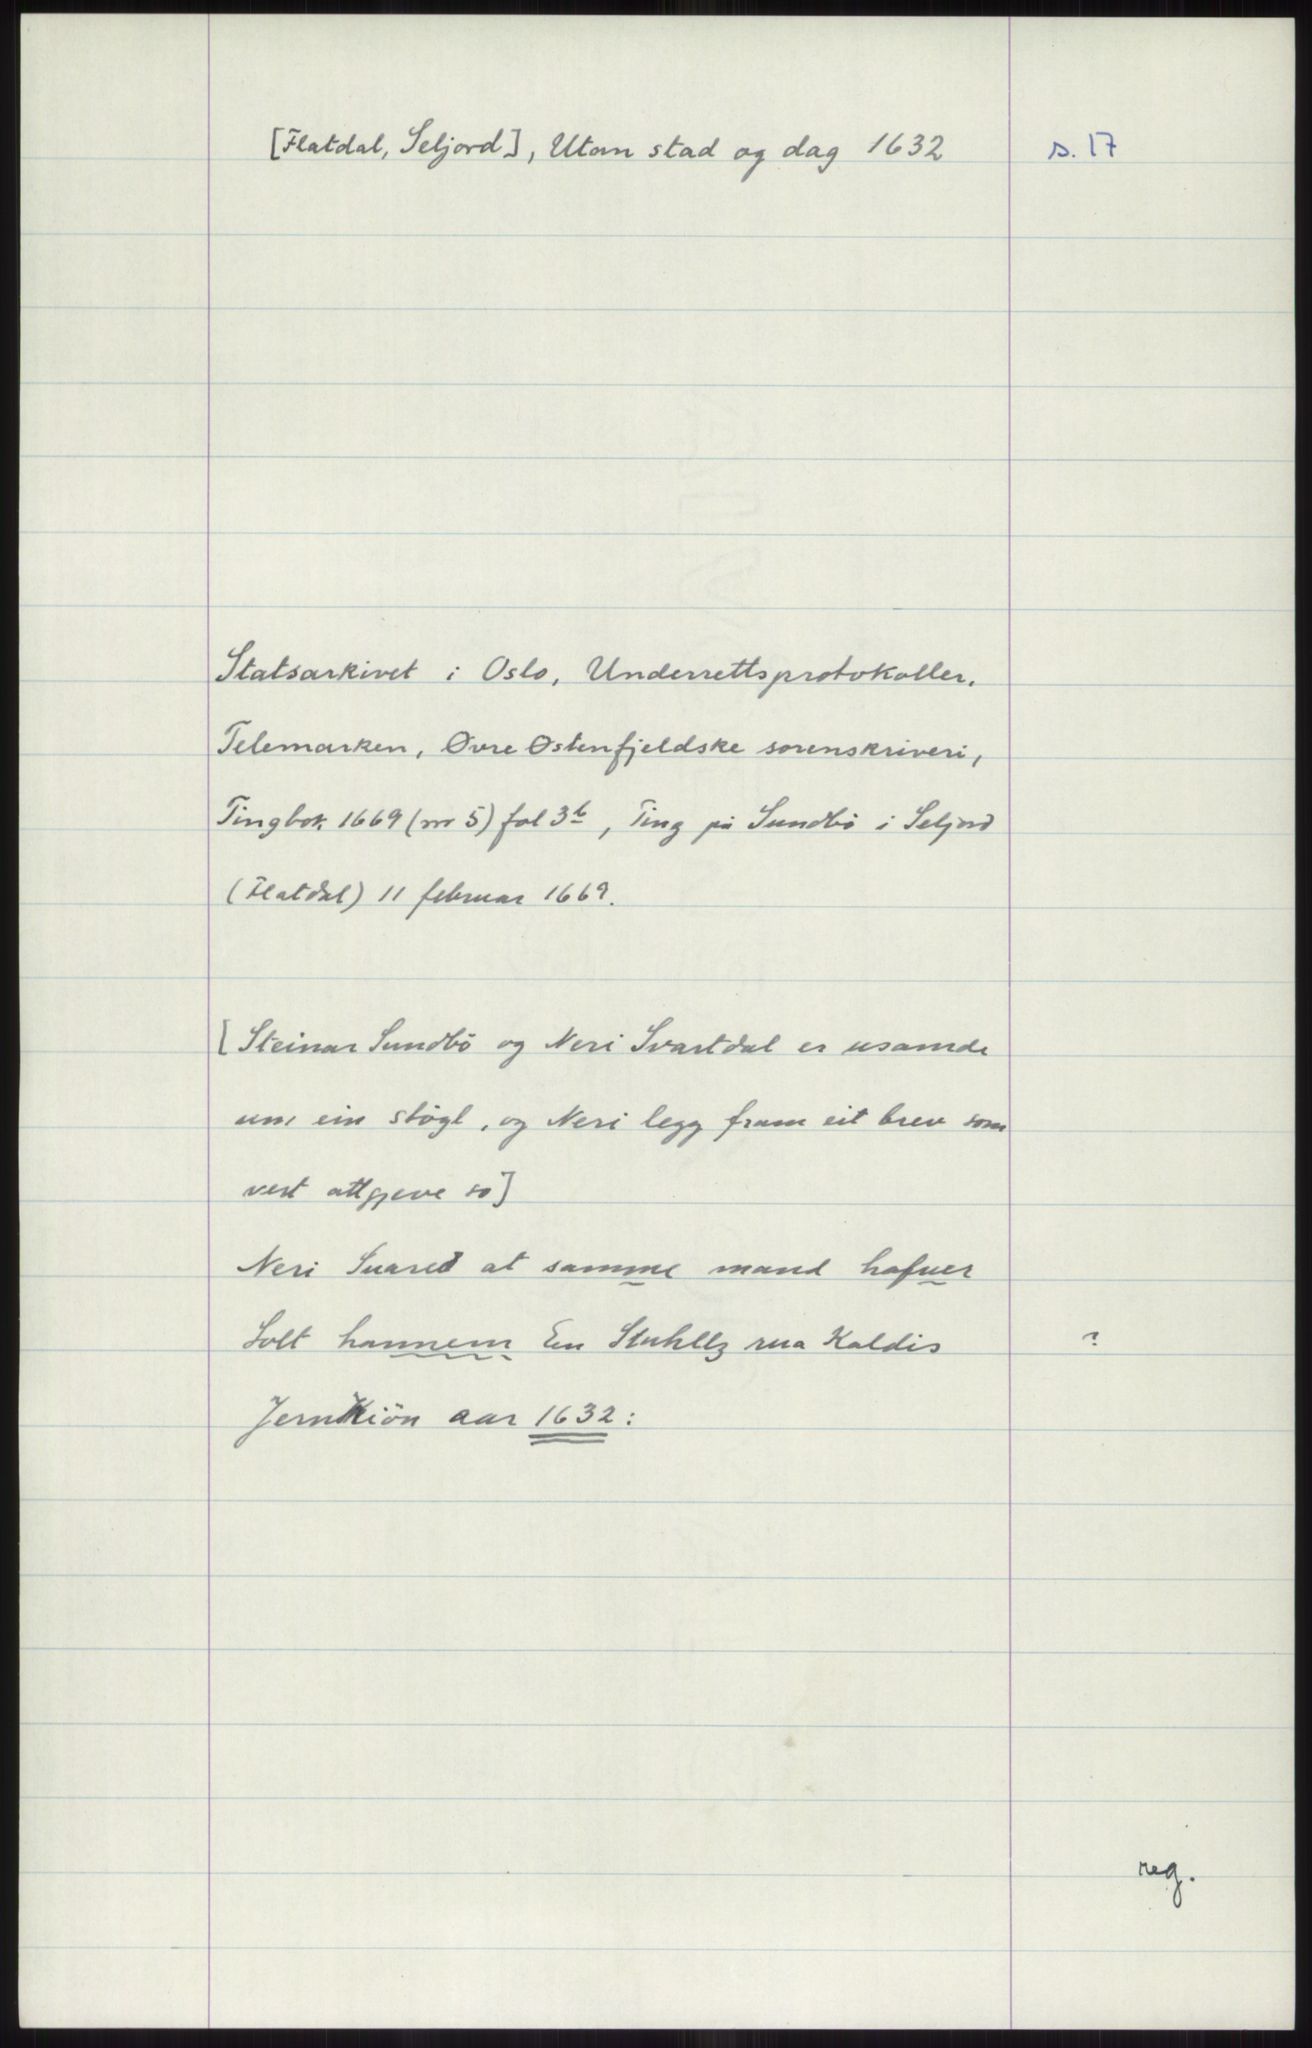 [Flatdal, Seljord], Utan stad og dag 1632
s. 17
Statsarkivet i Oslo, Underrettsprotokoller,
Telemarken, Øvre Østenfjeldske sorenskriveri,
Tingbok 1669 (nr 5) fol 3b, Ting på Sundbö i Seljord
(Flatdal) 11 februar 1669.
[Steinar Sundbö og Neri Svartdal er usamde
um ein stögl, og Neri legg fram eit brev som
vert attgjeve so]
Neri Suared at samme mand hafuer
Solt hannem En Stuhllz rua Kaldis
?
JernKiön aar 1632:
reg.